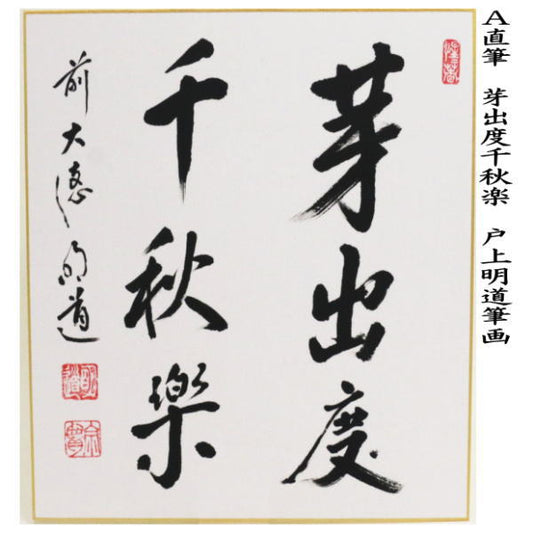 A直筆　芽出度千秋楽　戸上明道筆画
芽出度
千秋樂
前大徳明道